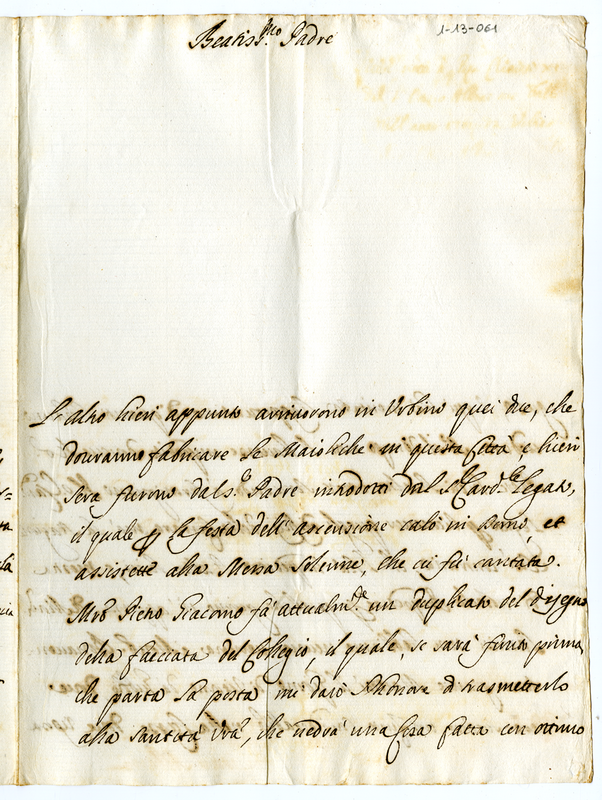 1-13-061
Beatiss.mo Padre
L'altro hieri appunto arrivorono in Urbino quei due, che
douranno fabricare le Maioliche in questa Città e hieri
sera furono dal s. Padre introdotti dal S.r Card.le Legato,
il quale p la festa dell'ascensione calò in Duomo, et
assistette alla Messa Solenne, che ci fu cantata.
M.ro Pietro Giacomo fà attualm.te un duplicato del disegno
della facciata del Collegio, il quale, se sarà finito prima,
che parta la posta mi darò l'honore di trasmetterlo
alla santità Vra, che vedrà una cosa fatta con ottimo